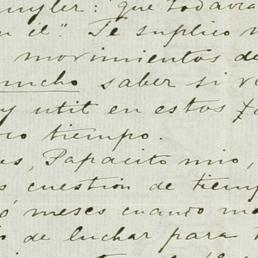 uyler: "que todavia
n él". Te suplico n
movimientos de
mucho saber si v
y util en estos
tiempo.
es, Papacito mio,
s cuestion de tiemp
ó meses cuando m
de luchar para